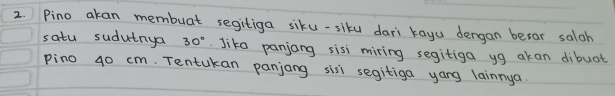 2. Pino akan membuat segitiga siku-siku dari kayu dengan besar salah
satu sudutnya 30°. Jika panjang sisi miring segitiga yg akan dibuat
Pino 40 cm. Tentukan panjang sisi segitiga yang lainnya.